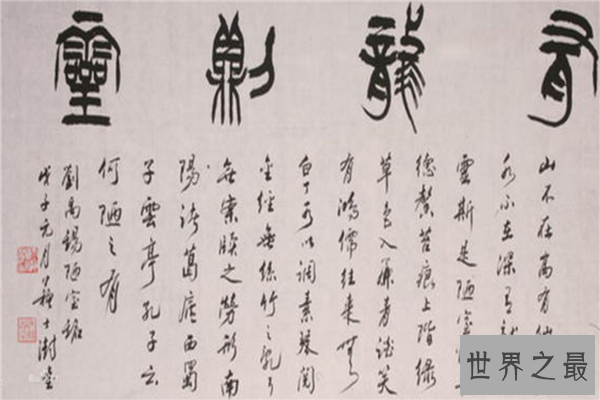 有龍則靈
山不在高有仙
水不在深有
雲斯是陋室
德馨苔痕上階綠
草色入簾青談笑
有鴻儒往來無
白丁可以調素琴閱
金經無絲竹之亂耳
無案牘之勞形南
陽諸葛廬西蜀
子雲亭孔子云
何陋之有
劉禹錫陋室銘
戊子元月蘇士澍書
世界之最